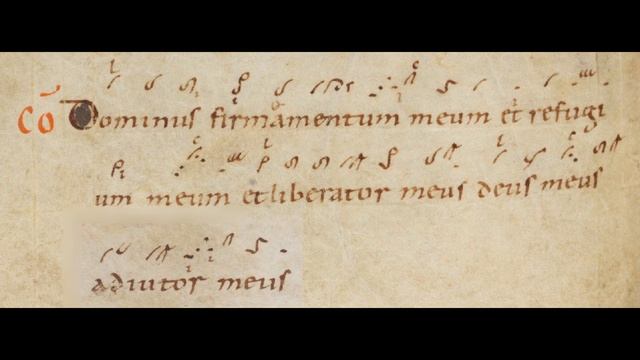 Cō Dominus firmamentum meum et refugi
um meum et liberator meus deus meus
adiutor meus